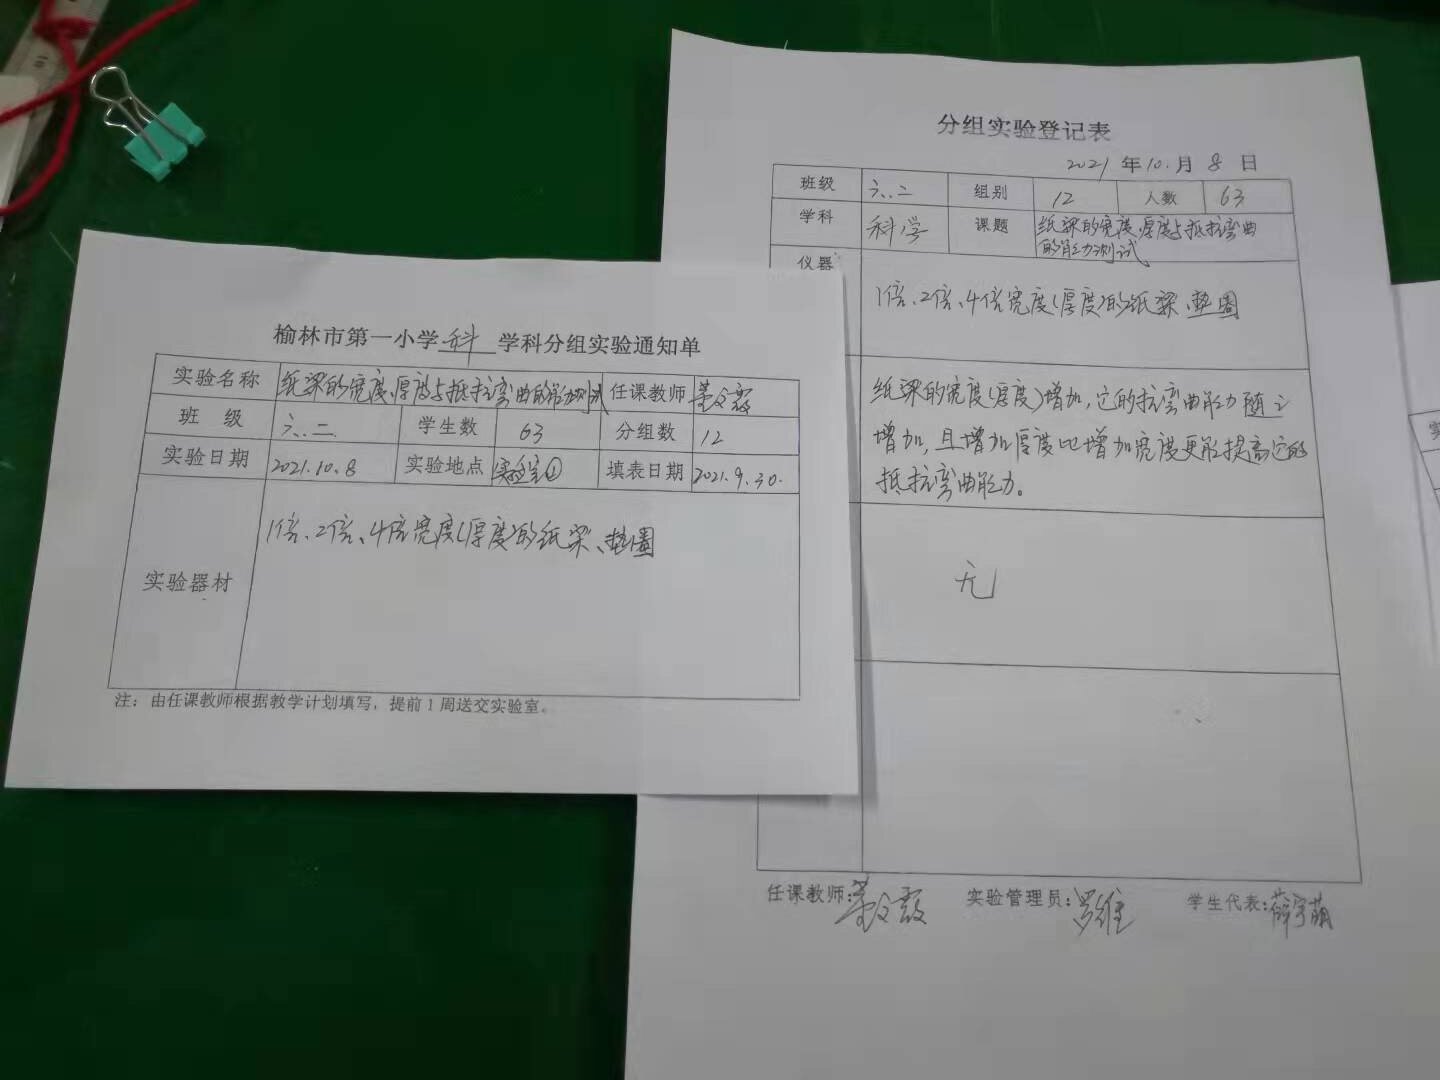 榆林市第一小学 科 学科分组实验通知单
实验名称 纸梁的宽度、厚度与抵抗弯曲的能力测试 任课教师 董文霞
班 级 六.二 学生数 63 分组数 12
实验日期 2021.10.8 实验地点 实验室① 填表日期 2021.9.30.
实验器材 1倍、2倍、4倍宽度(厚度)的纸梁、垫圈
注：由任课教师根据教学计划填写，提前1周送交实验室。
分组实验登记表
2021 年 10. 月 8 日
班级 六.二 组别 12 人数 63
学科 科学 课题 纸梁的宽度、厚度与抵抗弯曲
的能力测试
仪器
1倍、2倍、4倍宽度(厚度)的纸梁、垫圈
纸梁的宽度(厚度)增加,它的抗弯曲能力随之
增加,且增加厚度比增加宽度更能提高它的
抵抗弯曲能力。
无
任课教师:董文霞 实验管理员:罗维 学生代表:薛宇萌
实